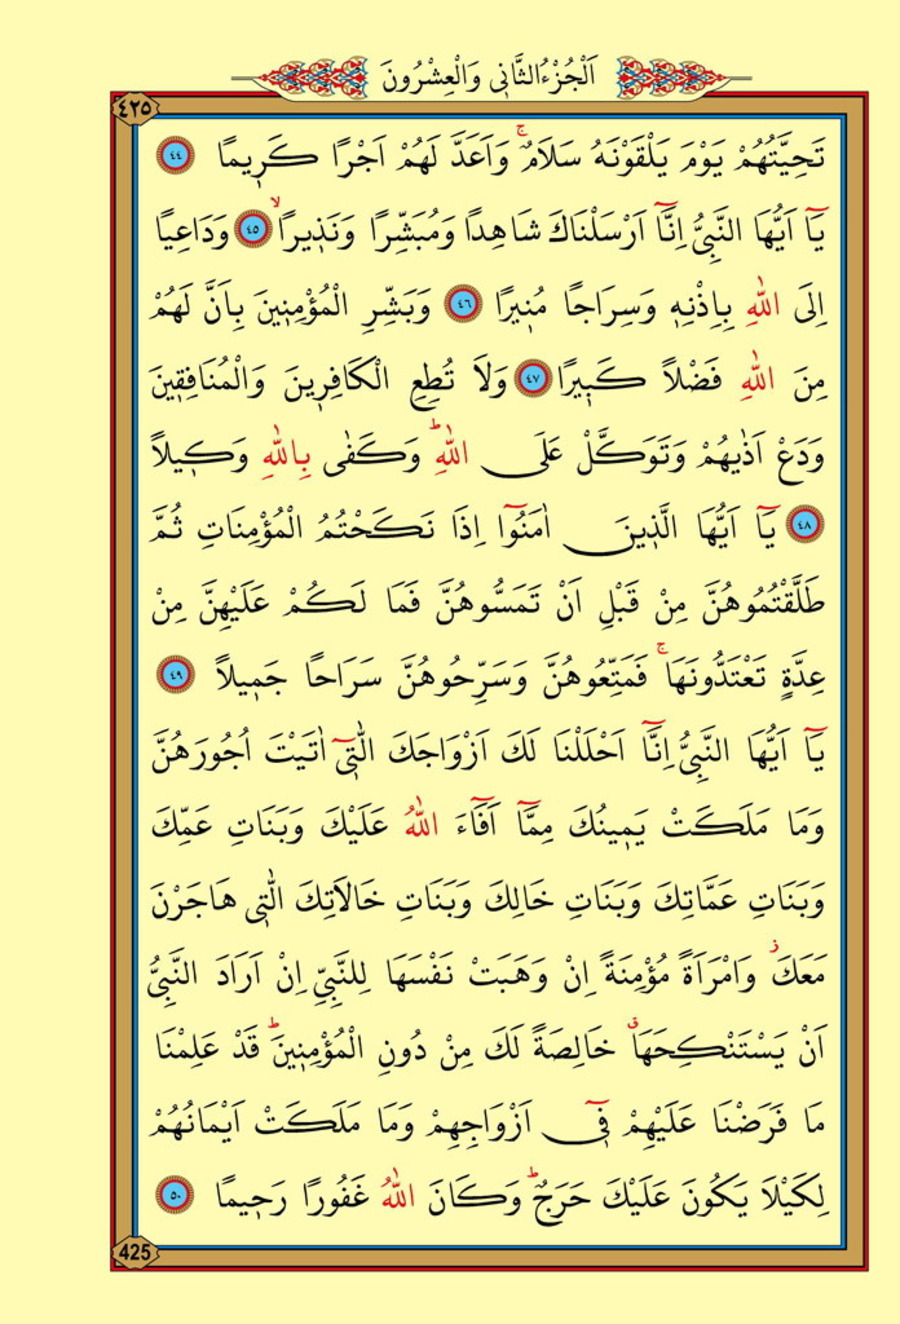 اَلْجُزْءُ الثَّانِي وَالْعِشْرُونَ
٤٢٥
تَحِيَّتُهُمْ يَوْمَ يَلْقَوْنَهُ سَلَامٌۚ وَاَعَدَّ لَهُمْ اَجْرًا كَرِيمًا ٤٤
يَٓا اَيُّهَا النَّبِيُّ اِنَّٓا اَرْسَلْنَاكَ شَاهِدًا وَمُبَشِّرًا وَنَذِيرًاۙ ٤٥ وَدَاعِيًا
اِلَى اللّٰهِ بِاِذْنِهِ وَسِرَاجًا مُنِيرًا ٤٦ وَبَشِّرِ الْمُؤْمِنِينَ بِاَنَّ لَهُمْ
مِنَ اللّٰهِ فَضْلاً كَبِيرًا ٤٧ وَلَا تُطِعِ الْكَافِرِينَ وَالْمُنَافِقِينَ
وَدَعْ اَذٰيهُمْ وَتَوَكَّلْ عَلَى اللّٰهِۜ وَكَفٰى بِاللّٰهِ وَكِيلاً
٤٨ يَٓا اَيُّهَا الَّذِينَ اٰمَنُٓوا اِذَا نَكَحْتُمُ الْمُؤْمِنَاتِ ثُمَّ
طَلَّقْتُمُوهُنَّ مِنْ قَبْلِ اَنْ تَمَسُّوهُنَّ فَمَا لَكُمْ عَلَيْهِنَّ مِنْ
عِدَّةٍ تَعْتَدُّونَهَاۚ فَمَتِّعُوهُنَّ وَسَرِّحُوهُنَّ سَرَاحًا جَمِيلاً ٤٩
يَٓا اَيُّهَا النَّبِيُّ اِنَّٓا اَحْلَلْنَا لَكَ اَزْوَاجَكَ الّٰتِٓي اٰتَيْتَ اُجُورَهُنَّ
وَمَا مَلَكَتْ يَمِينُكَ مِمَّٓا اَفَٓاءَ اللّٰهُ عَلَيْكَ وَبَنَاتِ عَمِّكَ
وَبَنَاتِ عَمَّاتِكَ وَبَنَاتِ خَالِكَ وَبَنَاتِ خَالَاتِكَ الّٰتِي هَاجَرْنَ
مَعَكَؗ وَامْرَاَةً مُؤْمِنَةً اِنْ وَهَبَتْ نَفْسَهَا لِلنَّبِيِّ اِنْ اَرَادَ النَّبِيُّ
اَنْ يَسْتَنْكِحَهَاࣗ خَالِصَةً لَكَ مِنْ دُونِ الْمُؤْمِنِينَۜ قَدْ عَلِمْنَا
مَا فَرَضْنَا عَلَيْهِمْ فِٓي اَزْوَاجِهِمْ وَمَا مَلَكَتْ اَيْمَانُهُمْ
لِكَيْلَا يَكُونَ عَلَيْكَ حَرَجٌۜ وَكَانَ اللّٰهُ غَفُورًا رَحِيمًا ٥٠
425